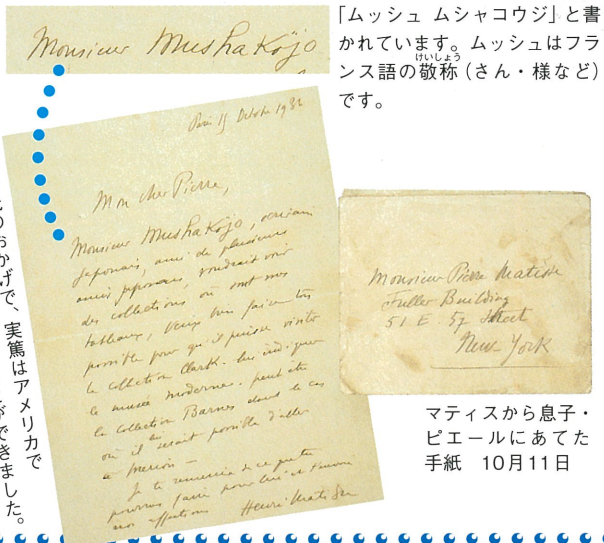 Monsieur Mushakôjo
「ムッシュ ムシャコウジ」と書
かれています。ムッシュはフラ
ンス語の敬称（さん・様など）
けいしょう
です。
Paris 15 Octobre 1936
Mon cher Pierre,
Monsieur Mushakôjo, écrivain
japonais, ami de plusieurs
amis japonais, voudrait voir
des collections où sont mes
tableaux, Veux tu faire ton
possible pour qu'il puisse visiter
la collection Clark. lui indiquer
le musée moderne. peut être
la collection Barnes dans le cas
où il lui serait possible d'aller
à Merion —
Je te remercie de ce que tu
pourras faire pour lui et t'envoie
mes affections Henri Matisse
Monsieur Pierre Matisse
Fuller Building
51 E 57 Street
New York
マティスから息子・
ピエールにあてた
手紙　10月11日
のおかげで、実篤はアメリカで
ができました。